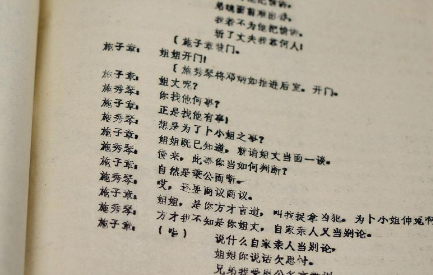 我若不为他把恨诉，
斩了丈夫我靠何人！
（施子章敲门。
施子章： 姐姐开门！
（施秀琴将邓炳如推进后室。开门。
施子章： 姐丈呢？
施秀琴： 你找他何事？
施子章： 正是找他有事！
施秀琴： 想是为了卜小姐之事？
施子章： 姐姐既已知道，就请姐丈当面一谈。
施秀琴： 慢来，此事你当如何判断？
施子章： 自然是秉公而断。
施秀琴： 哎，还要商议商议。
施子章： 姐姐，是你方才言道，叫我捉拿凶犯，为卜小姐伸冤
施秀琴： 方才我不知是你姐丈，自家亲人又当别论。
施子章： （唱） 说什么自家亲人当别论，
姐姐你说话欠思忖。